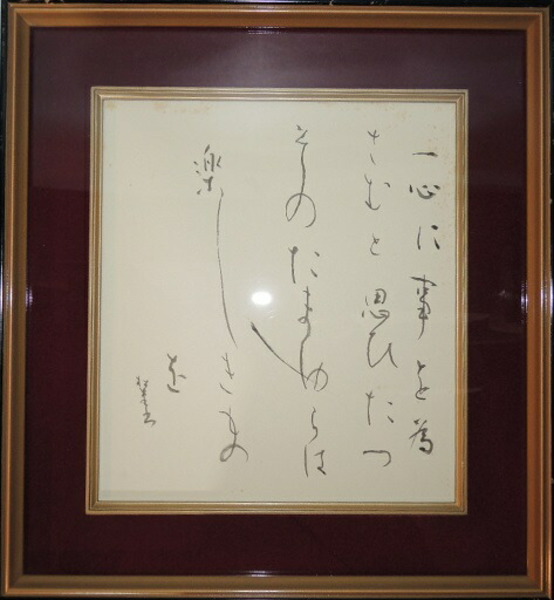 一心に事を為
さむと思ひたつ
そのたまゆらは
楽しきもの
を